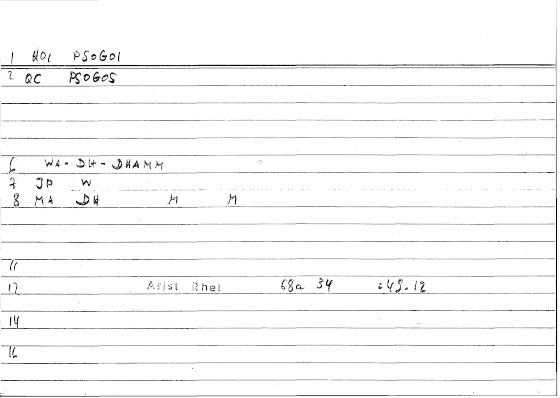 1 HOC PSOGOI
2 QC PSOGOS
6 WA - DH - DHAMM
7 JP W
8 MA DH M M
11
12 Arist Rhet 68a 34 =49.12
14
16